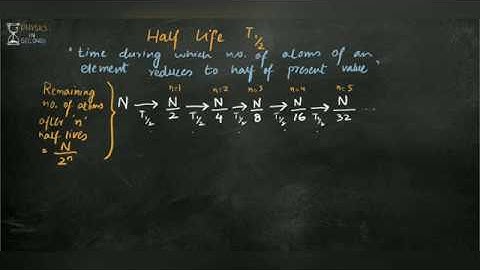 PHYSICS
IN
SECONDS
Half Life T1/2
"time during which no. of atoms of an
element reduces to half of present value"
Remaining
no. of atoms
after 'n'
half lives
= N/2ⁿ
n=1 n=2 n=3 n=4 n=5
N → N/2 → N/4 → N/8 → N/16 → N/32 .....
T1/2 T1/2 T1/2 T1/2 T1/2